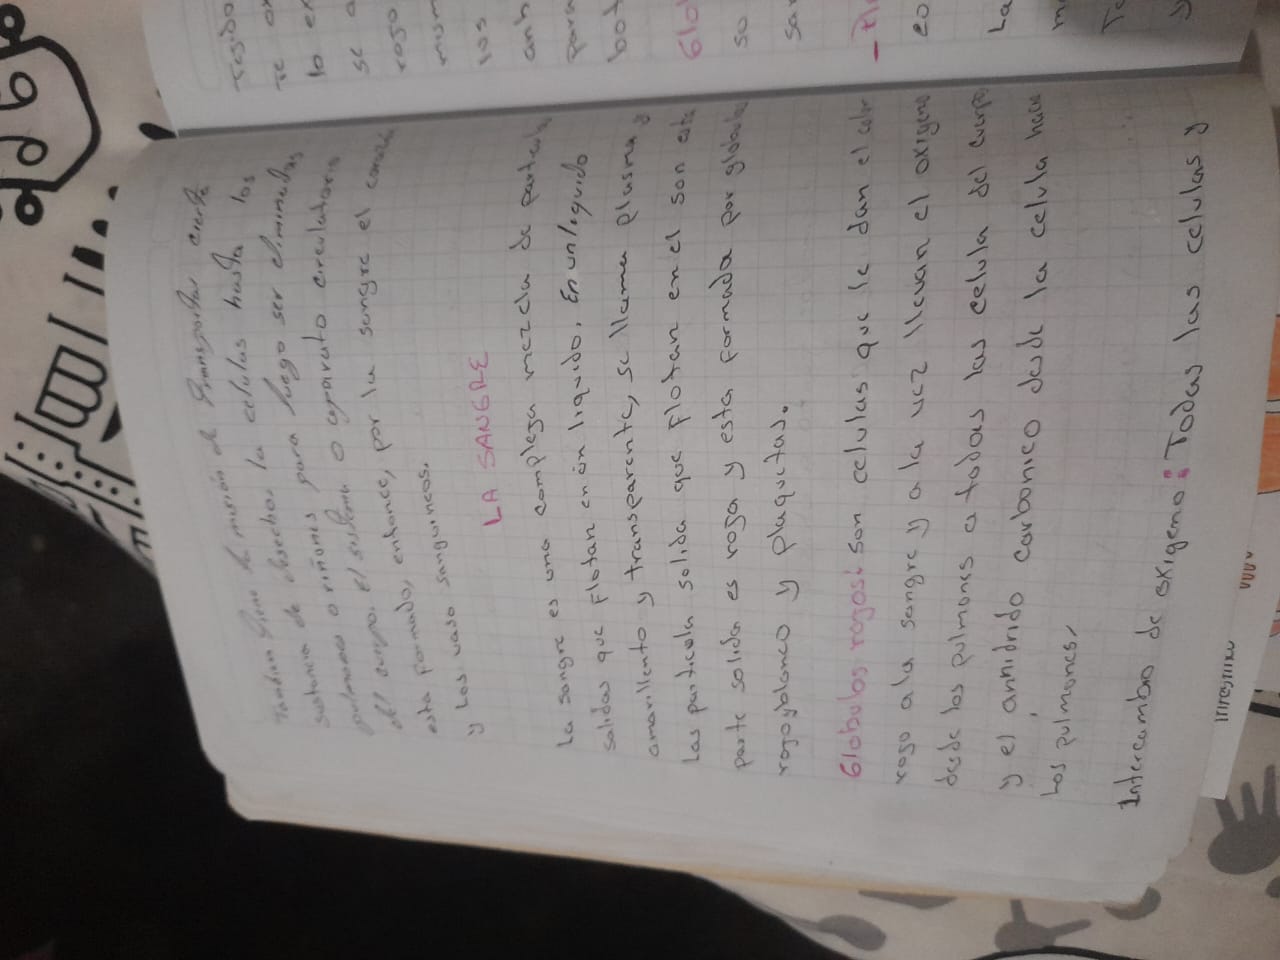 tambien tiene la misión de transportar cierta
sustancia de desechos la celulas hasta los
pulmones o riñones para luego ser eliminadas
del cuerpo. el sistema o aparato circulatorio
esta formado, entonce, por la sangre el corazón
y los vaso sanguineos.
LA SANGRE
La sangre es una compleja mezcla de particula
solidas que flotan en un liquido. En un liquido
amarillento y transparente, se llama plasma y
Las particula solida que flotan en el son esta
parte solida es roja y esta formada por globulo
rojo y blanco y plaquetas.
Globulos rojos: son celulas que le dan el color
rojo a la sangre y a la vez llevan el oxigeno
desde los pulmones a todas las celula del cuerpo
y el anhidrido carbonico desde la celula hacia
Los pulmones,
Intercambio de oxigeno: Todas las celulas y
Tejido
te ox
lo ex
se
rojo
mom
los
anh
para
bot
Glo
su
san
- Pla
co
La